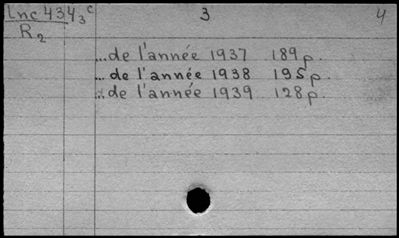 Lnc 4343 c 3 4
R2
...de l'année 1937 189 p.
...de l'année 1938 195 p.
...de l'année 1939 128 p.